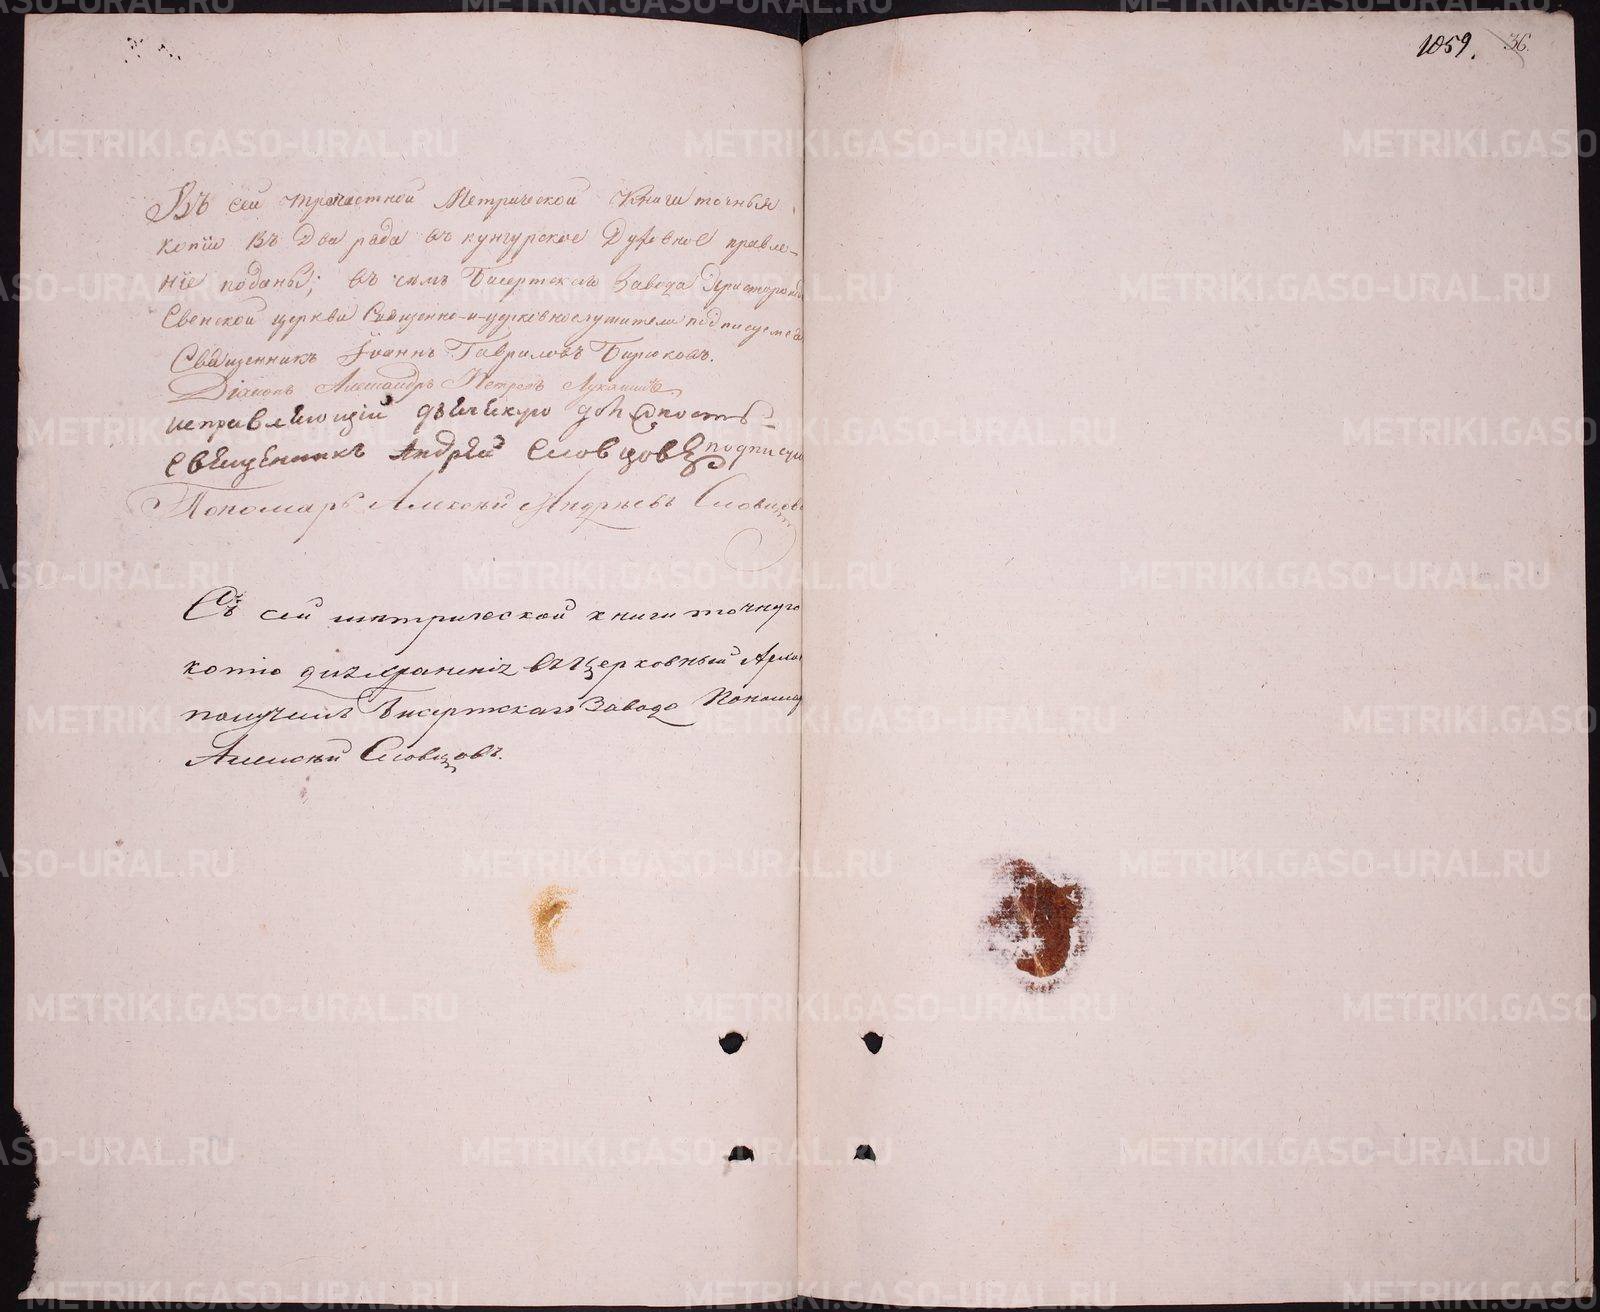 1059. 36.
Въ сей тречастной Метрической Книги точныя
копіи въ два ряда въ кунгурское Духовное правле-
ніе поданы; въ чемъ Бисертскаго Завода Христорожд
Свенской церкви Священно-и-церковнослужители подписуемся
Священникъ Іоаннъ Гавриловъ Бирюковъ.
Діаконъ Александръ Петровъ Луканинъ
исправляющій дьячкую должность
священникъ Андрей Словцовъ подписуи
Пономарь Алексѣй Андреевъ Словцовъ
Съ сей метрической книги точную
копію для храненія въ Церковный Архи
получилъ Бисертскаго Завода Пономар
Алексѣй Словцовъ.
METRIKI.GASO-URAL.RU